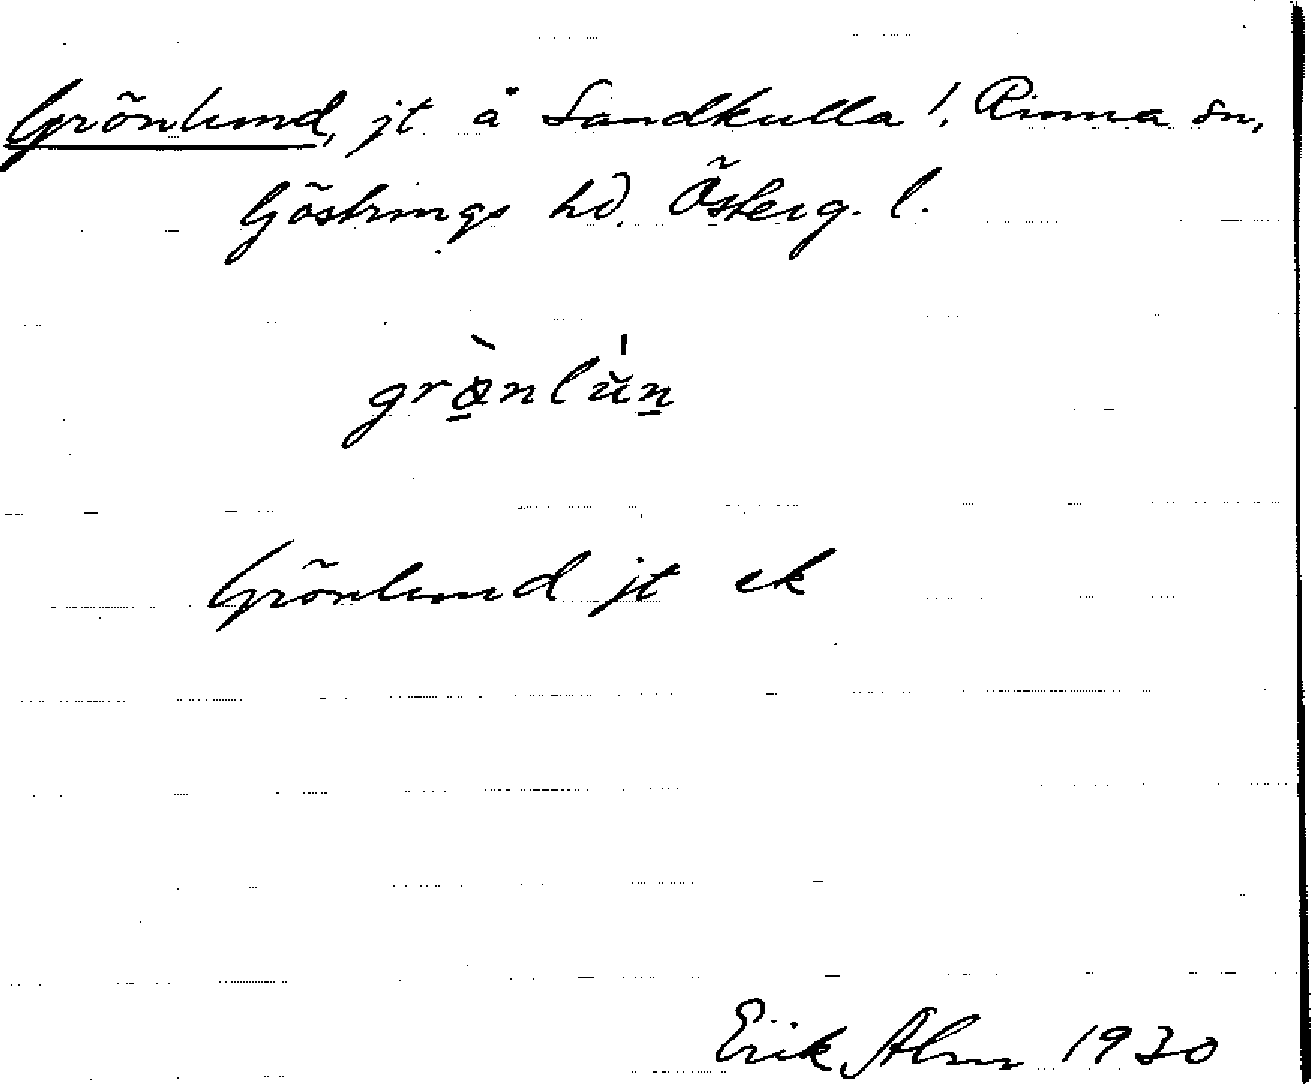 Grönlund, jt å Sandkulla !, Rinna sn,
Göstrings hd. Österg. l.
grø̱̀nlŭ́n̠
Grönlund jt ek
Erik Alm 1930